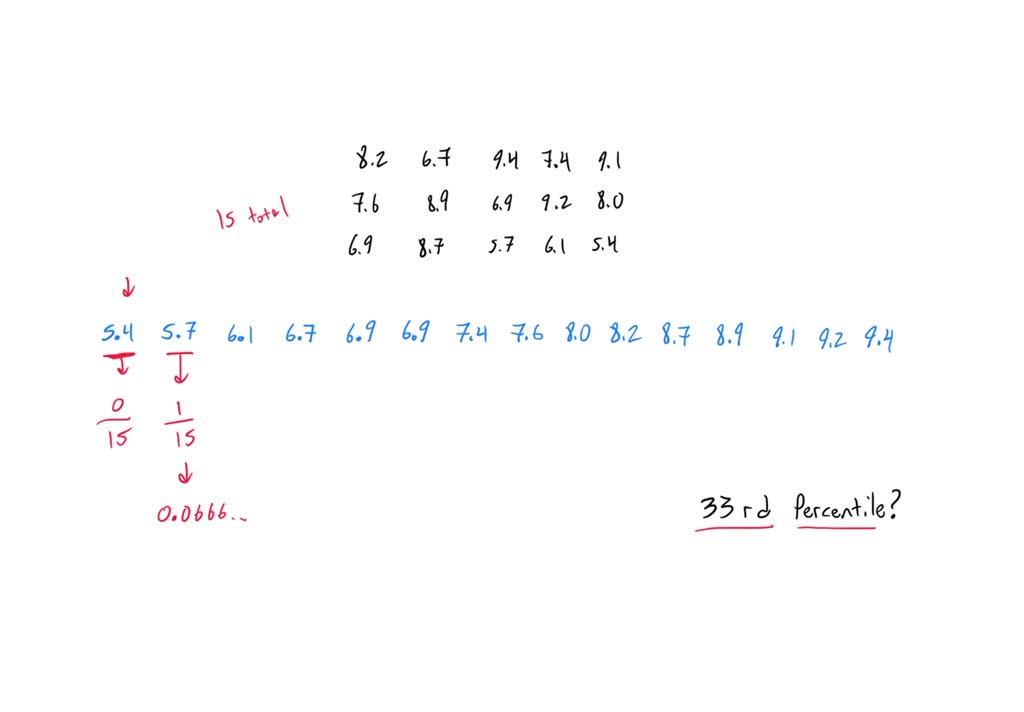 8.2 6.7 9.4 7.4 9.1
15 total
7.6 8.9 6.9 9.2 8.0
6.9 8.7 5.7 6.1 5.4
5.4 5.7 6.1 6.7 6.9 6.9 7.4 7.6 8.0 8.2 8.7 8.9 9.1 9.2 9.4
0/15 1/15
0.0666..
33rd Percentile?